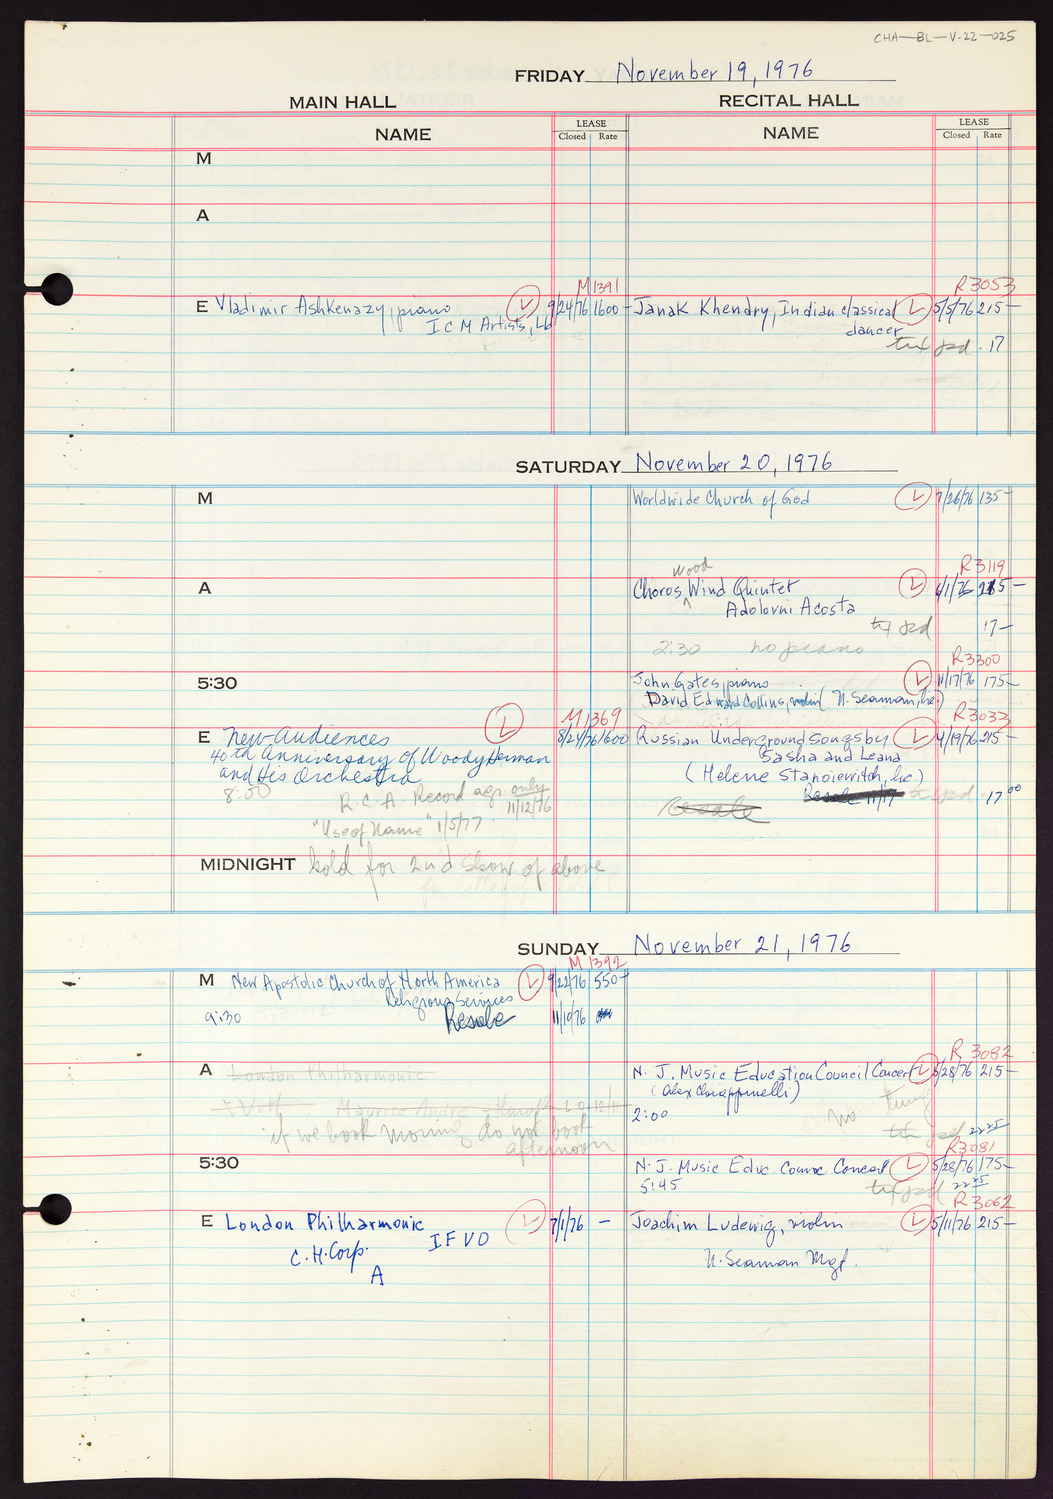 CHA-BL-V-22-025
FRIDAY November 19, 1976
MAIN HALL
RECITAL HALL
NAME
LEASE
Closed Rate
NAME
LEASE
Closed Rate
M
A
M1391
R3053
E Vladimir Ashkenazy, piano L 9/24/76 1600-
ICM Artists, Ltd
Janak Khendry, Indian classical L 5/5/76 215-
dancer
txt pd. 17
SATURDAY November 20, 1976
M
Worldwide Church of God L 7/26/76 135-
A
R3119
wood
Choros Wind Quintet L 6/1/76 215-
Adolovni Acosta
txt pd 17-
2:30 no piano
5:30
R3300
John Gates, piano L 11/17/76 175-
David Edward Collins, violin (N. Seaman, Inc.)
M1369
R3033
E New Audiences L 8/24/76 1600
40th Anniversary of Woody Herman
and His Orchestra
8:00
R.C.A. Record agr. only
11/12/76
"Use of Name" 1/5/77
Russian Underground songs by L 4/19/76 215-
Sasha and Leana
(Helene Stanoiewitch, Inc.)
Resale 11/17 txt pd. 17.00
Resale
MIDNIGHT hold for 2nd Show of above
SUNDAY November 21, 1976
M 1392
M New Apostolic Church of North America L 9/22/76 550-
Religious Services
9:30 Resale 11/10/76
A London Philharmonic
Maurice Andre
if we book morning do not book
afternoon
R 3082
N. J. Music Education Council Concert L 5/28/76 215-
(Alex Chiappinelli)
2:00
no
txt pd 22.25
5:30
R3081
N. J. Music Educ. Counc Concert L 5/28/76 175-
5:45 txt pd 22.25
R3062
E London Philharmonic L 7/1/76 -
C.H. Corp. IFVO
A
Joachim Ludewig, violin L 5/11/76 215-
N. Seaman Mgt.